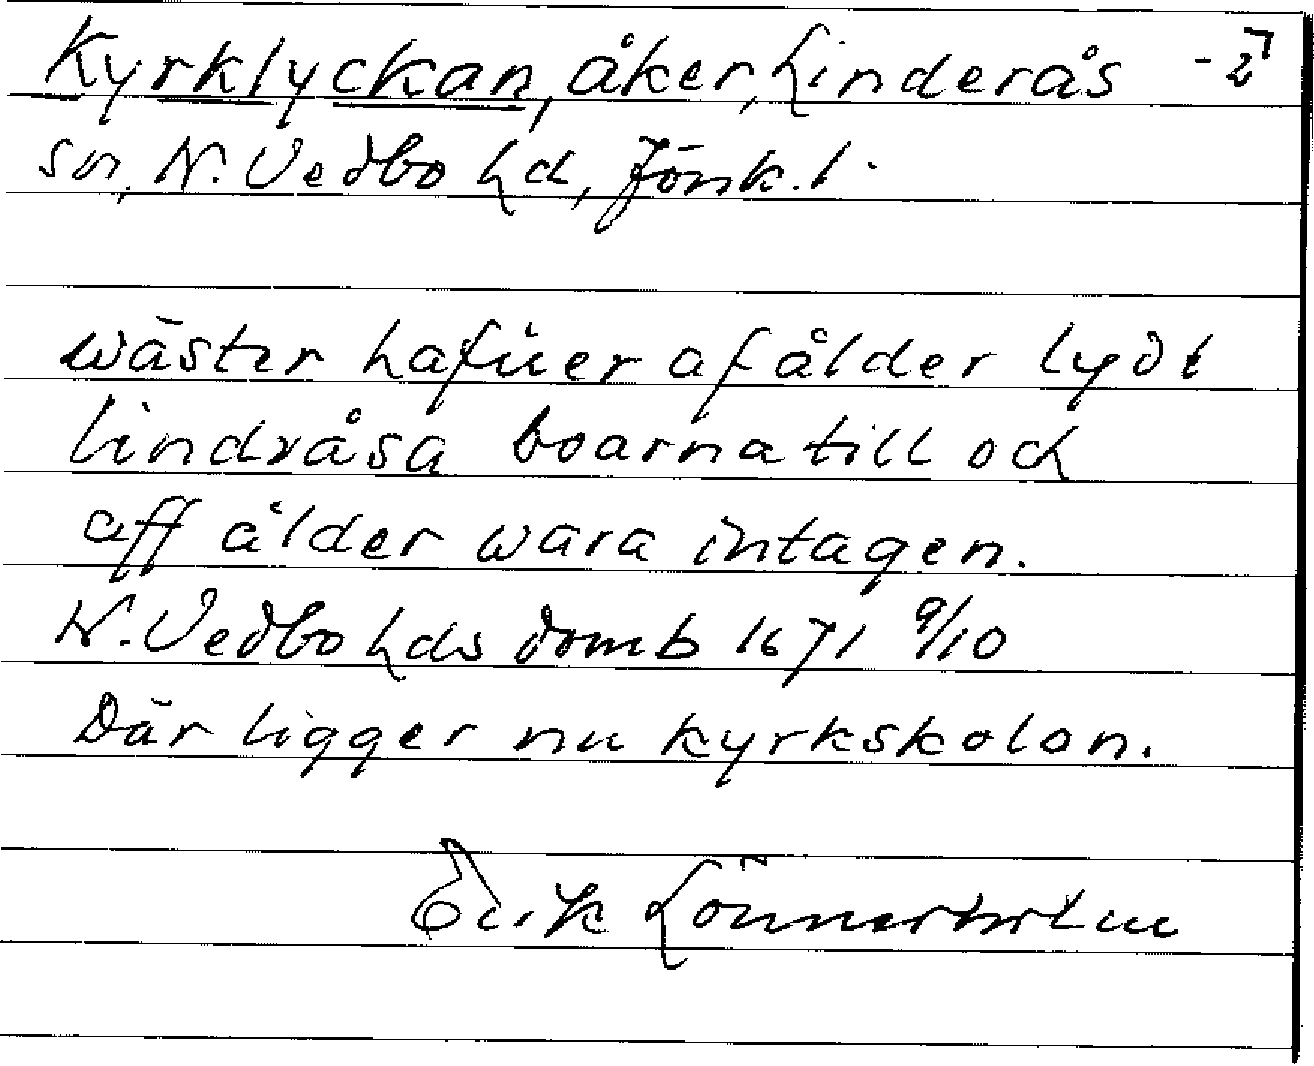 Kyrklyckan, åker, Linderås -2
sn, N. Vedbo hd, Jönk. l.
wäster hafuer af ålder lydt
lindråsa boarna till och
aff ålder wara intagen.
N. Vedbo hds domb 1671 9/10
Där ligger nu kyrkskolan.
Erik Lönnerholm